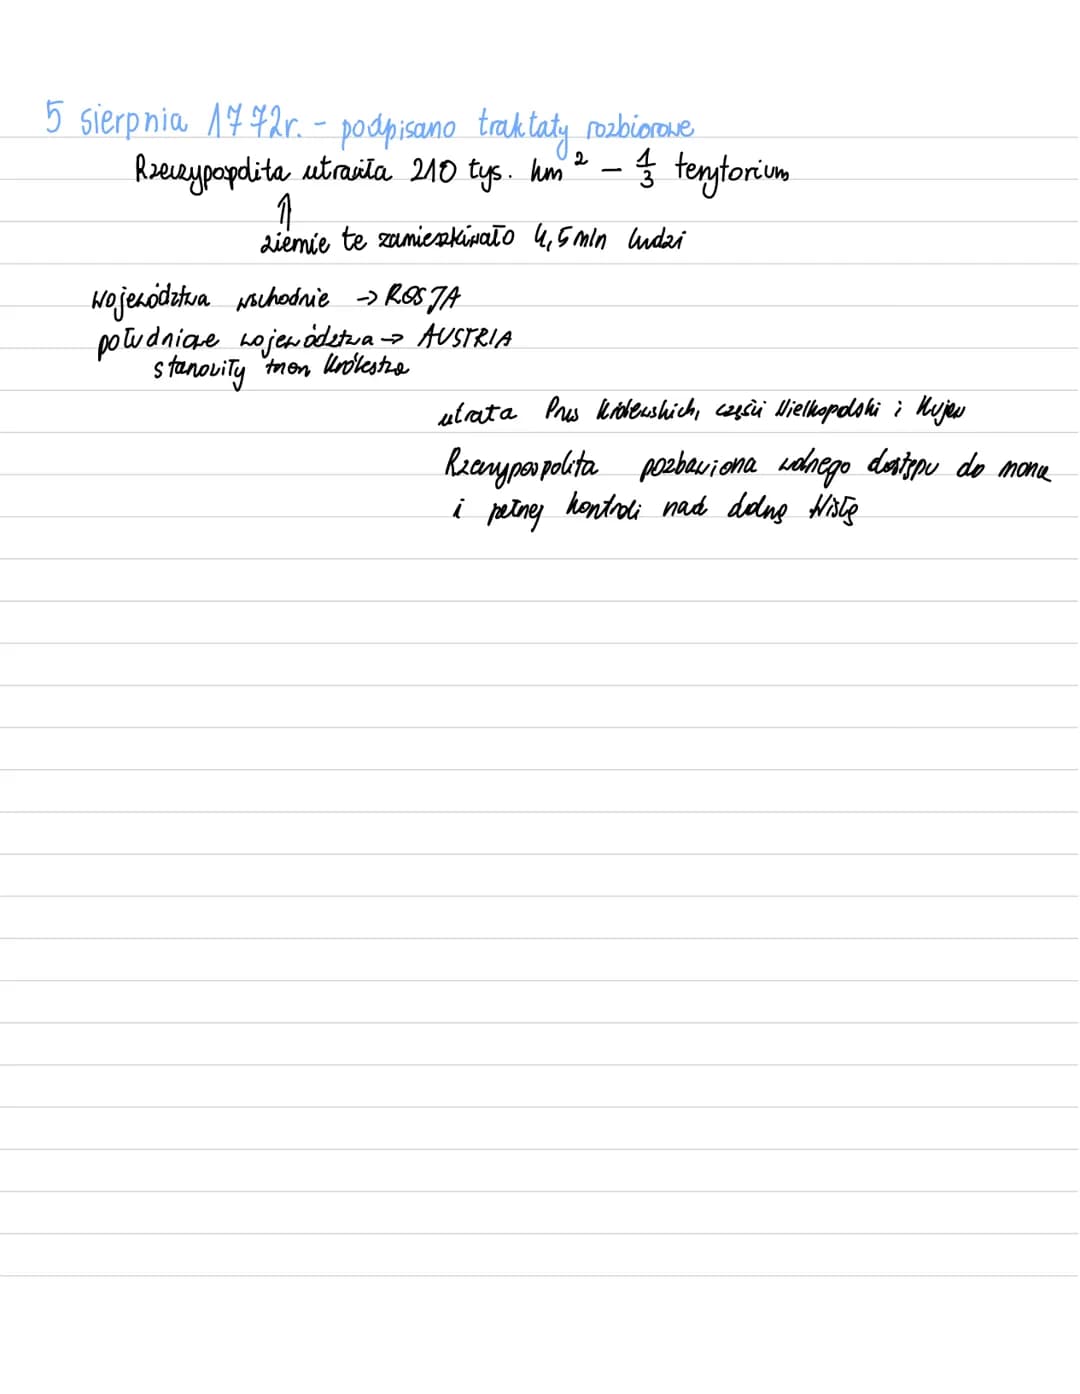 5 sierpnia 1772r. - podpisano traktaty rozbiorowe
Rzeczypospolita utraciła 210 tys. km² - 1/3 terytorium
↑
ziemie te zamieszkiwało 4,5 mln ludzi
Województwa wschodnie -> ROSJA
południowe województwa -> AUSTRIA
stanowiły trzon królestwa
utrata Prus Królewskich, części Wielkopolski i Kujaw
Rzeczypospolita pozbawiona wolnego dostępu do morza
i pełnej kontroli nad dolną Wisłą